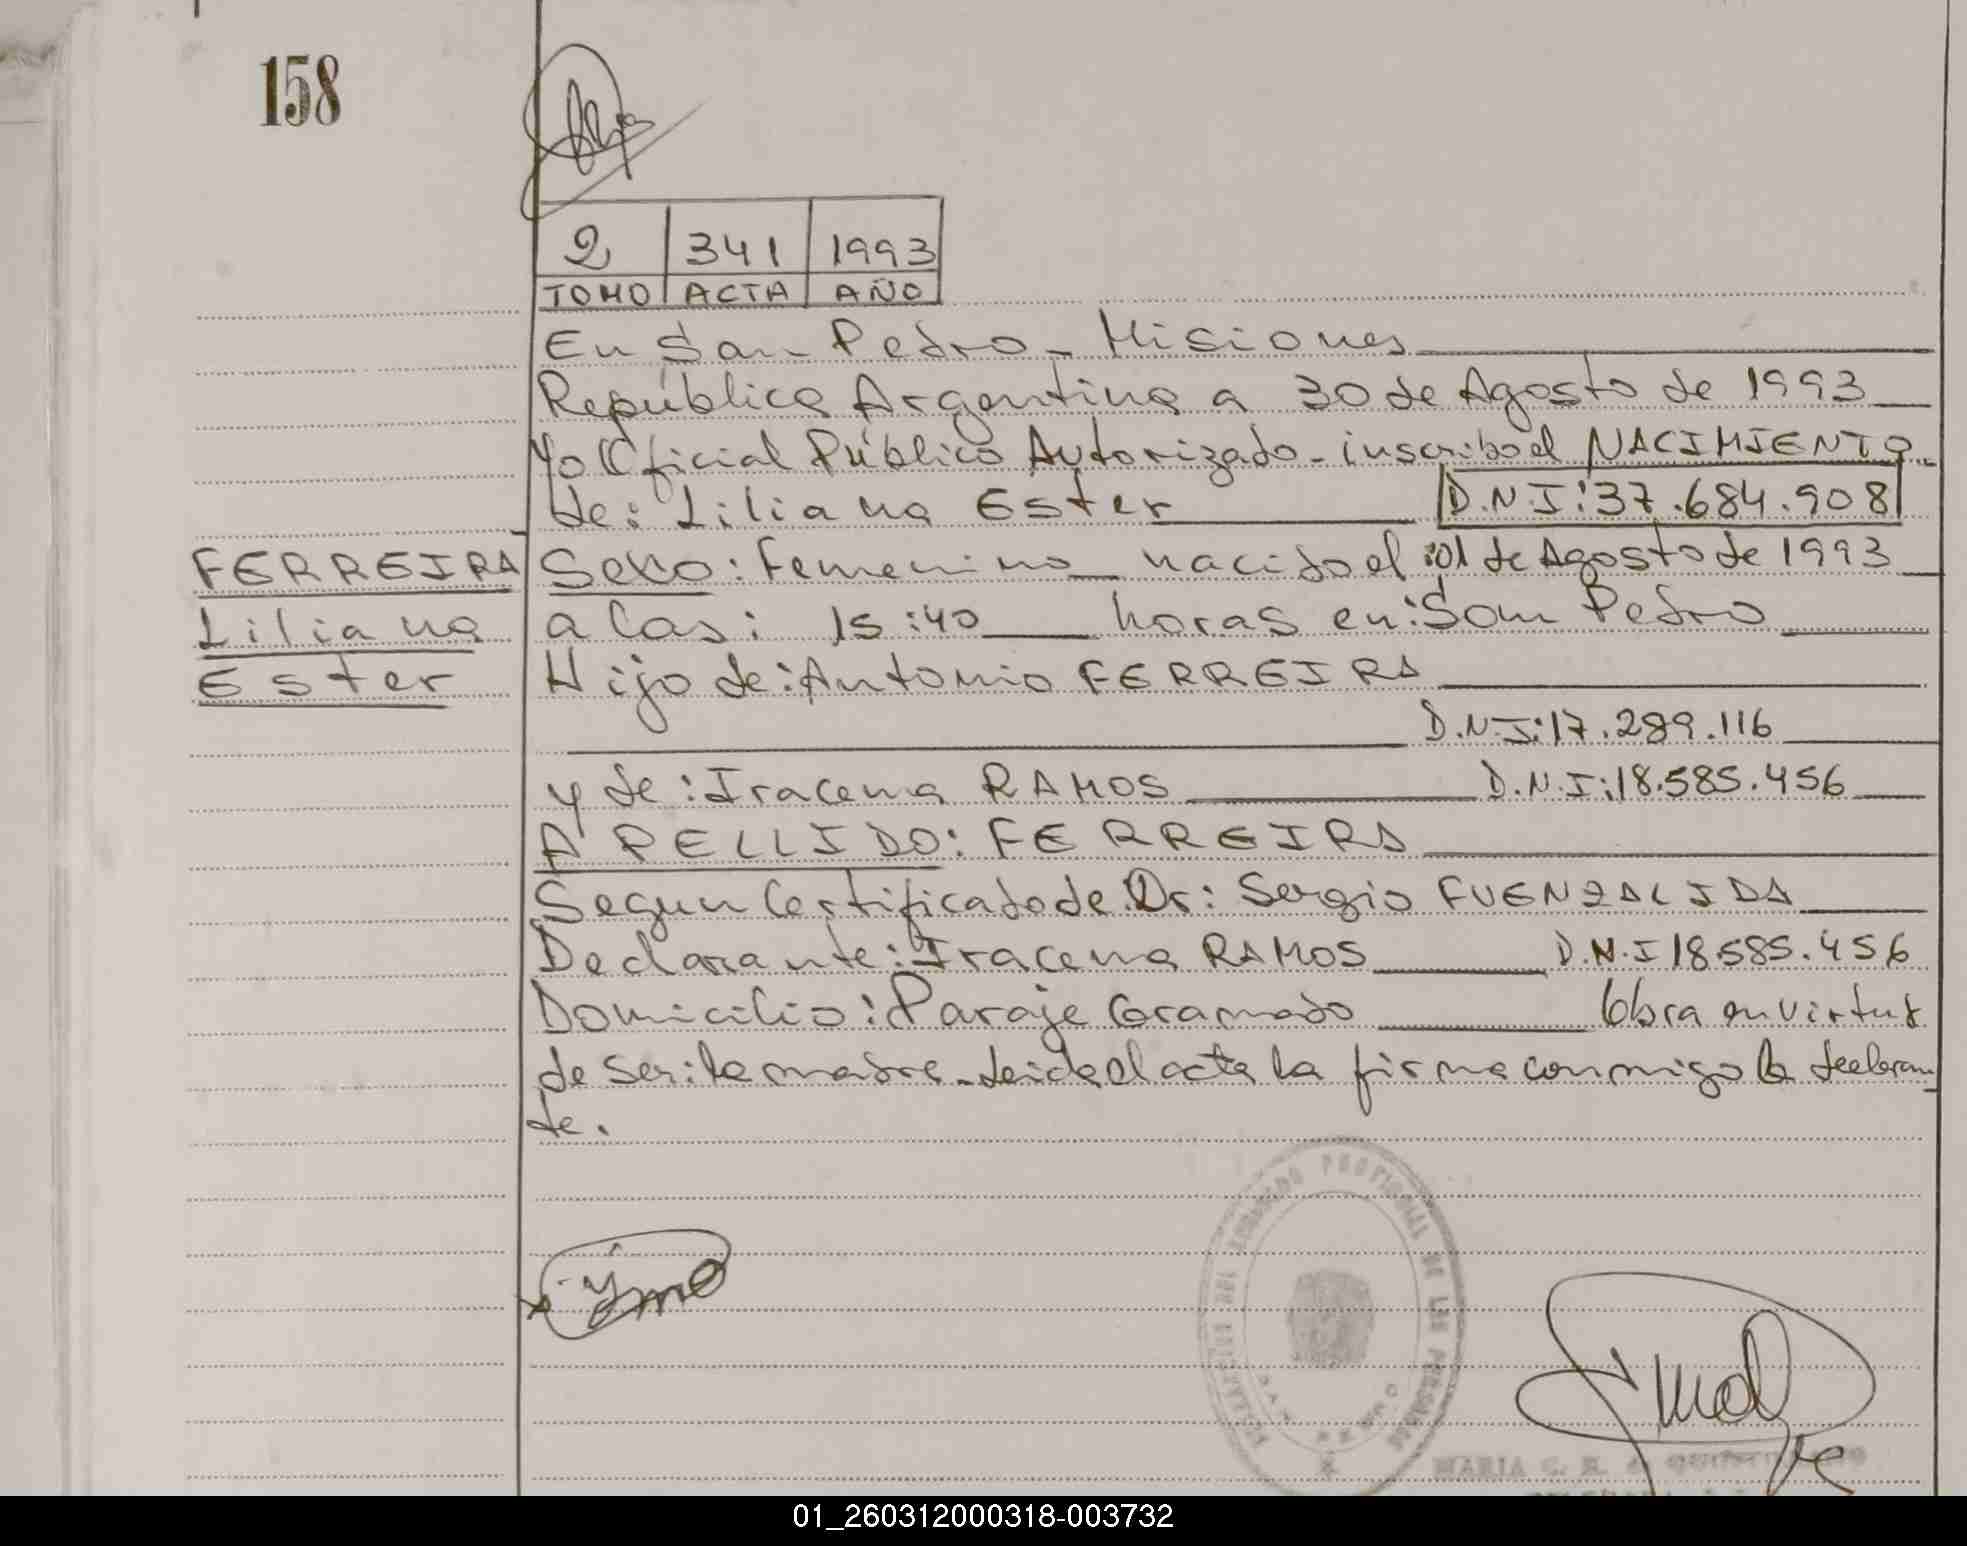 158
2 341 1993
TOMO ACTA AÑO
En San Pedro - Misiones
República Argentina a 30 de Agosto de 1993
Yo Oficial Público Autorizado - inscribo el NACIMIENTO
de: Liliana Ester D.N.I: 37.684.908
FERREIRA
Liliana
Ester
Sexo: Femenino nacido el: 01 de Agosto de 1993
a las: 15:40 horas en: San Pedro
Hijo de: Antonio FERREIRA
D.N.I: 17.289.116
y de: Iracema RAMOS D.N.I: 18.585.456
APELLIDO: FERREIRA
Segun Certificado de Dr: Sergio FUENZALIDA
Declarante: Iracema RAMOS D.N.I 18.585.456
Domicilio: Paraje Gramado Obra en virtud
de ser: la madre - leida el acta la firma conmigo la declaran
te.
REGISTRO PROVINCIAL DE LAS PERSONAS
SAN PEDRO
MARIA
01_260312000318-003732